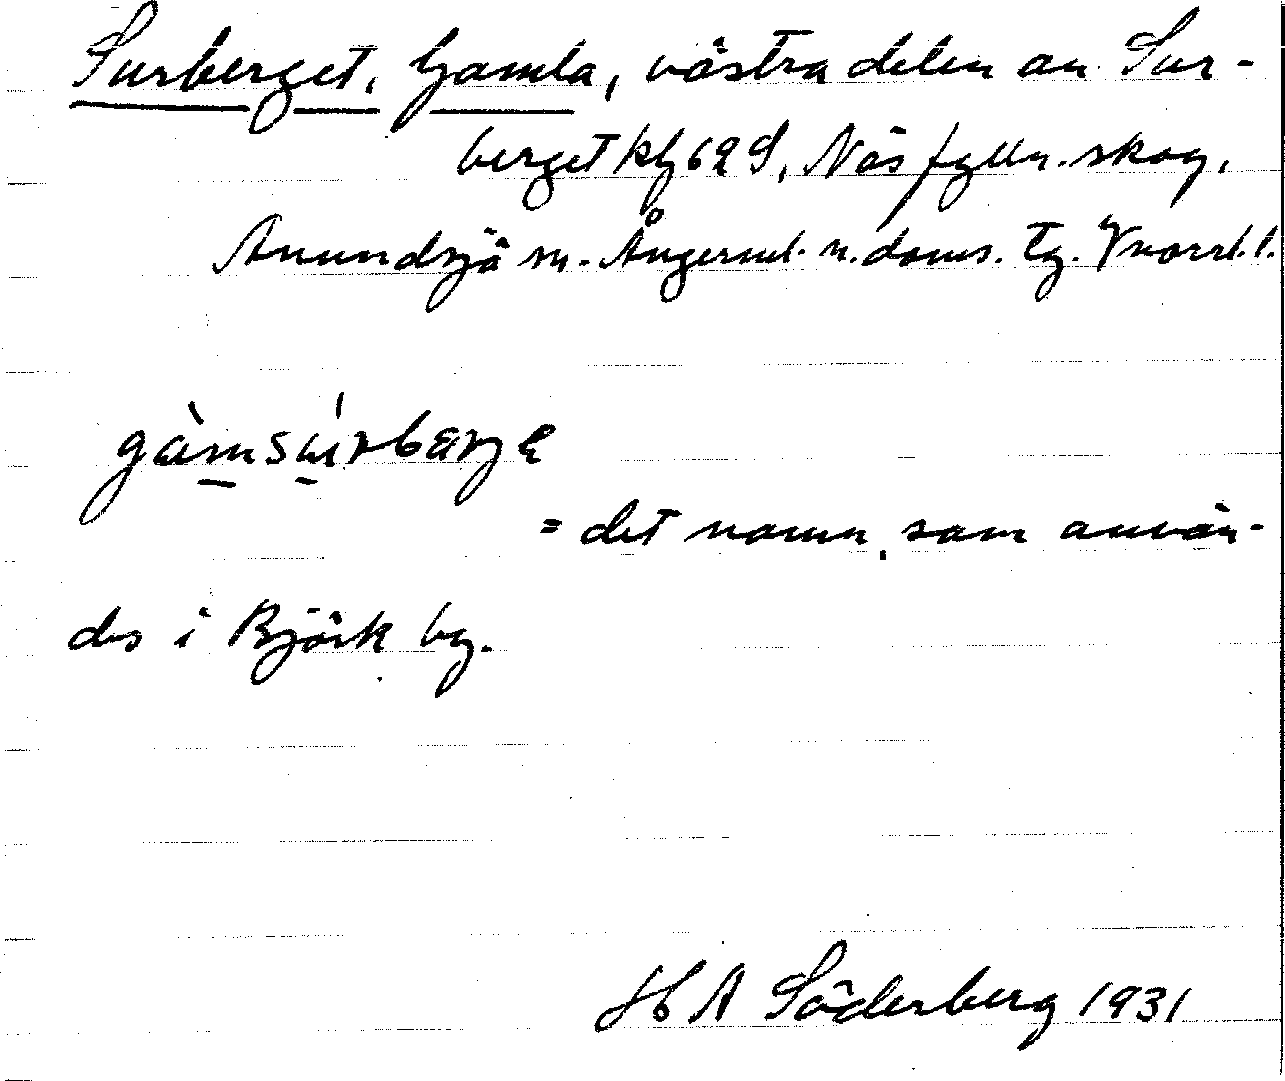 Surberget, Gamla, västra delen av Sur-
berget kfj 62 S, Näs fylln. skog,
Anundsjö sn. Ångerml. n. doms. tg. Vnorrl. l.
gàmsúrbærje
= det namn, som använ-
des i Björk by.
H A Söderberg 1931